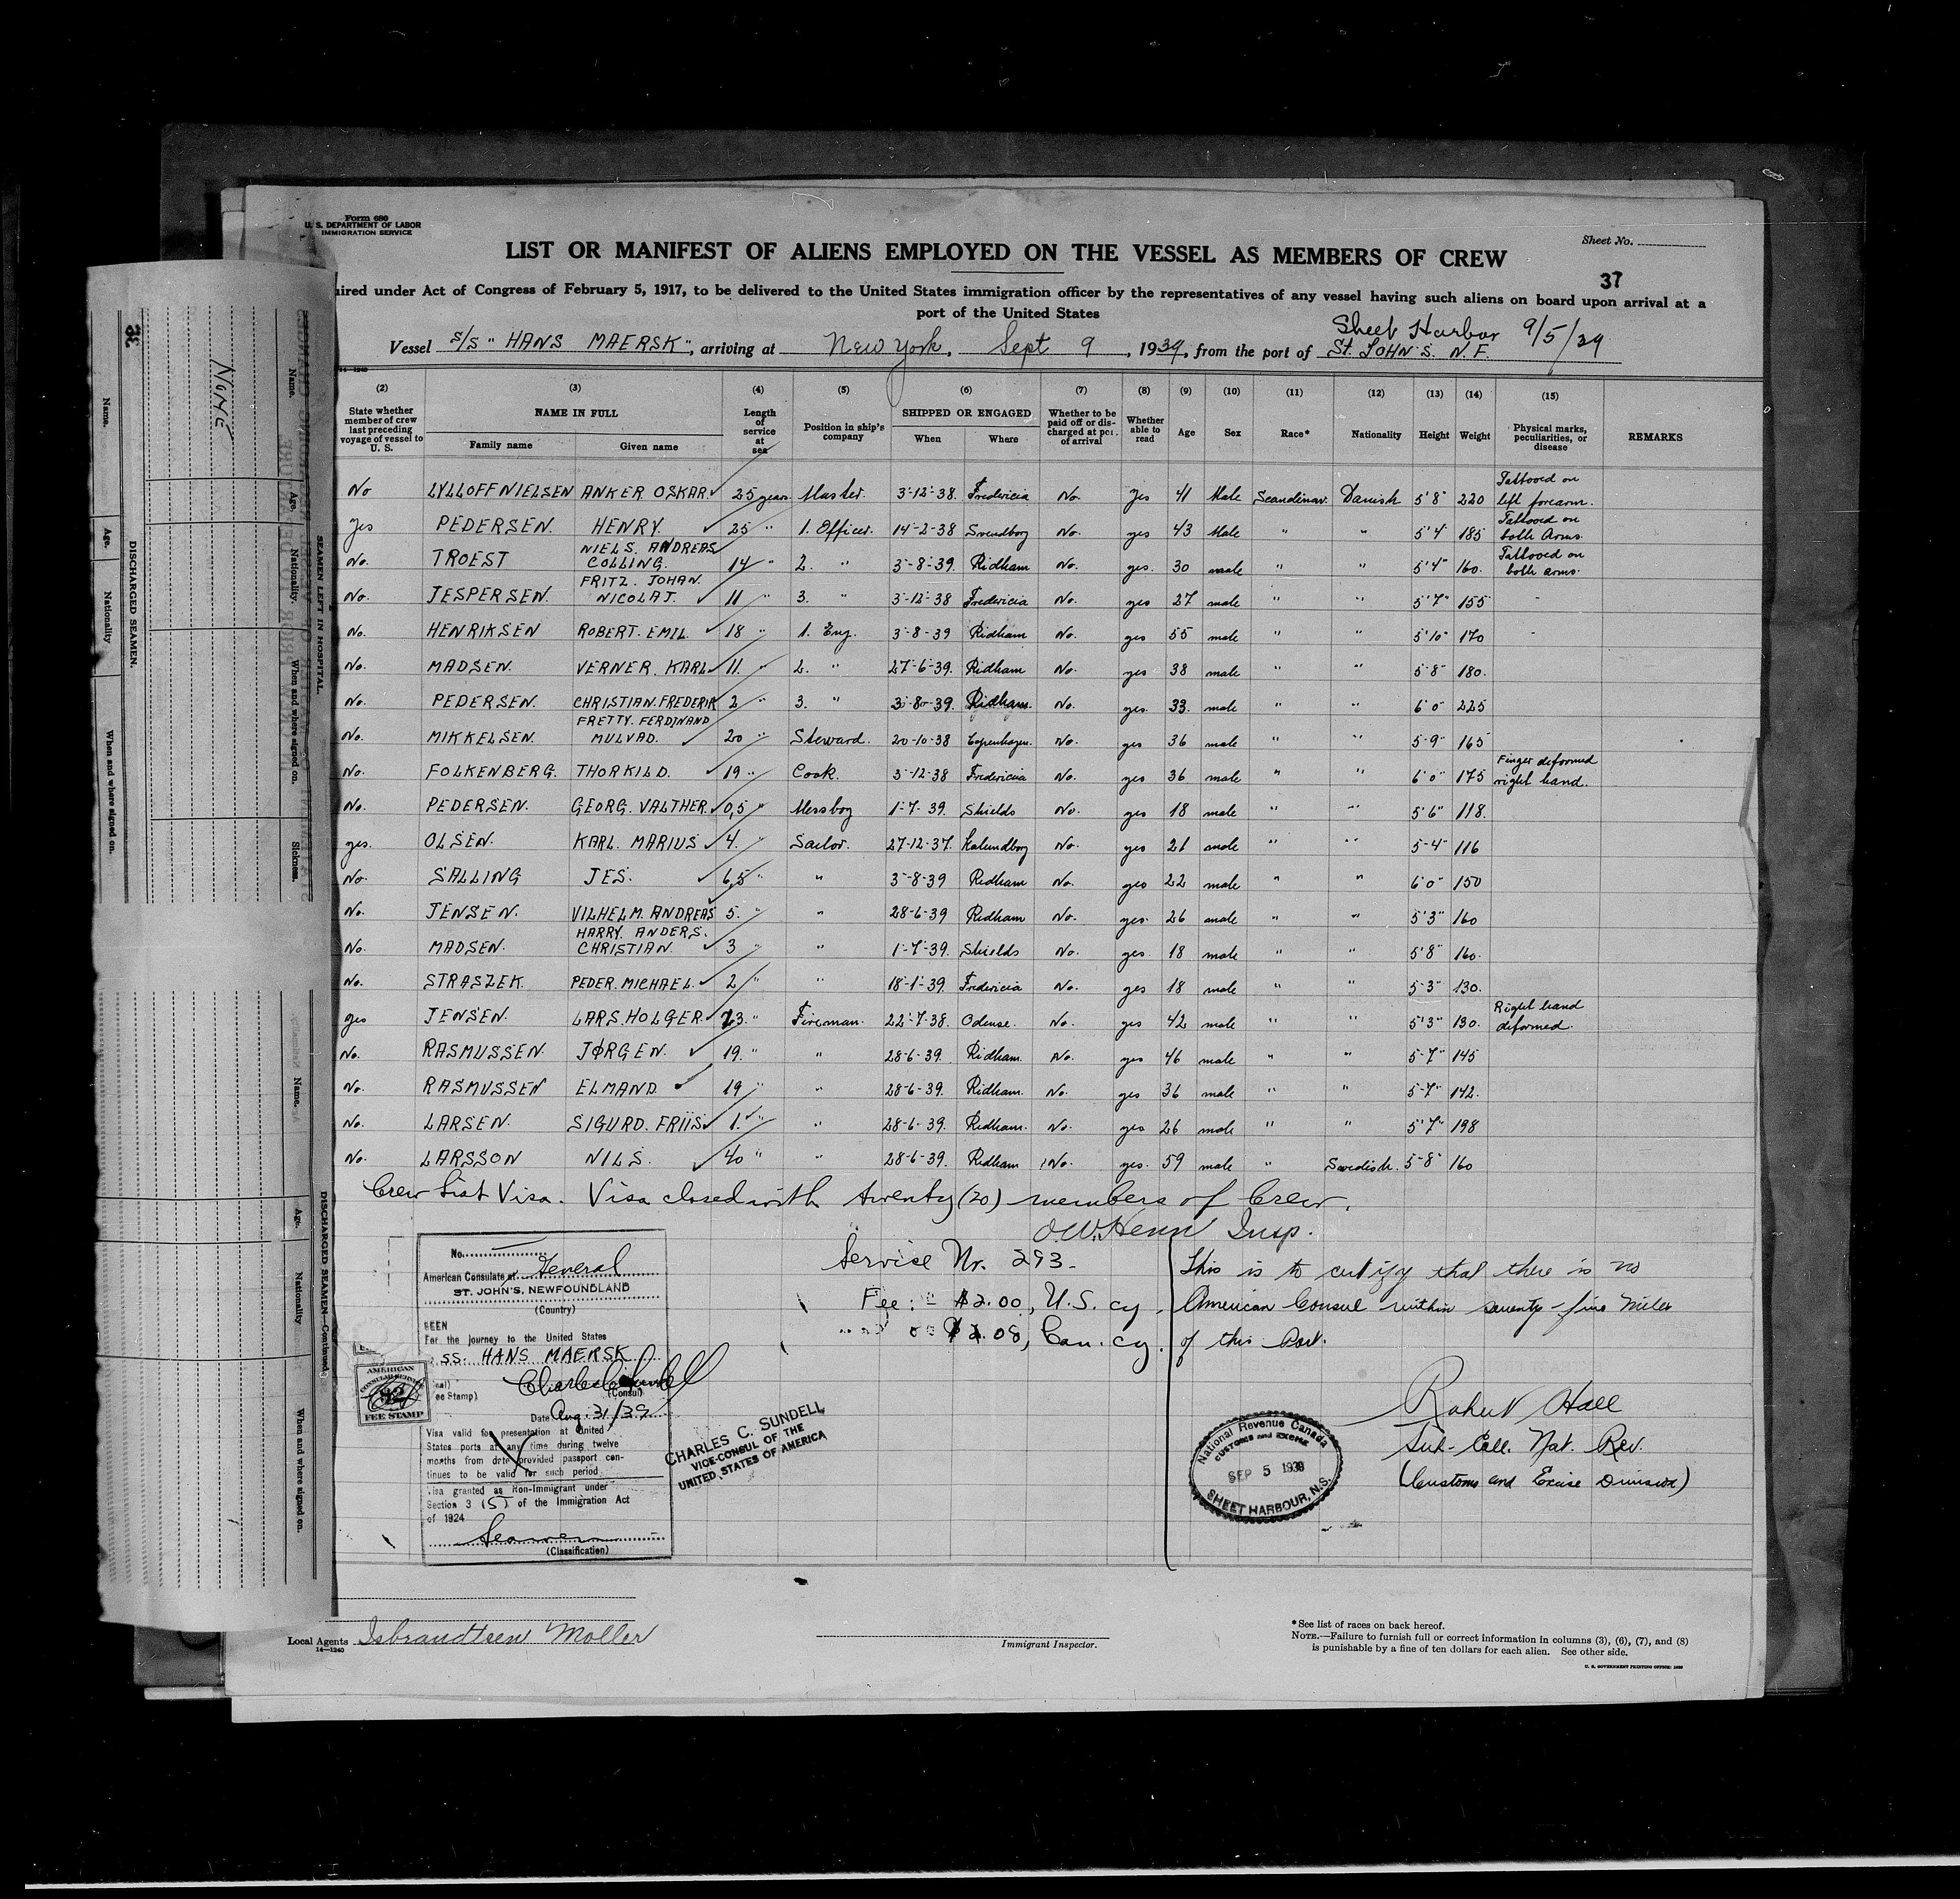 Form 680
U. S. DEPARTMENT OF LABOR
IMMIGRATION SERVICE
Sheet No.
LIST OR MANIFEST OF ALIENS EMPLOYED ON THE VESSEL AS MEMBERS OF CREW
37
uired under Act of Congress of February 5, 1917, to be delivered to the United States immigration officer by the representatives of any vessel having such aliens on board upon arrival at a
port of the United States
Sheet Harbor 9/5/39
Vessel S/S "HANS MAERSK", arriving at New York, Sept 9, 1939, from the port of St. JOHN'S. N.F.
(2) (3) (4) (5) (6) (7) (8) (9) (10) (11) (12) (13) (14) (15)
State whether member of crew last preceding voyage of vessel to U. S. NAME IN FULL Family name Given name Length of service at sea Position in ship's company SHIPPED OR ENGAGED When Where Whether to be paid off or discharged at port of arrival Whether able to read Age Sex Race* Nationality Height Weight Physical marks, peculiarities, or disease REMARKS
No LYLLOFF NIELSEN ANKER OSKAR 25 years Master. 3-12-38. Fredericia No. Yes 41 Male Scandinav. Danish 5'8" 220 Tattooed on left forearm.
yes PEDERSEN. HENRY. 25 " 1. Officer. 14-2-38 Svendborg No. yes 43 Male " " 5'4" 185 Tattooed on both Arms.
No. TROEST NIELS. ANDREAS COLLING. 14 " 2. " 3-8-39. Ridham No. yes. 30 male " " 5'4" 160. Tattooed on both arms.
No. JESPERSEN. FRITZ. JOHAN. NICOLAJ. 11 " 3. " 3-12-38 Fredericia No. yes 27 male " " 5'7" 155 -
No. HENRIKSEN ROBERT. EMIL. 18 " 1. Eng. 3-8-39 Ridham No. yes 55 male " " 5'10" 170 -
No. MADSEN. VERNER. KARL 11. " 2. " 27-6-39. Ridham No. yes 38 male " " 5'8" 180.
No. PEDERSEN. CHRISTIAN. FREDERIK 2 " 3. " 3-8-39. Ridham. No. yes. 33. male " " 6'0" 225
No. MIKKELSEN. FRETTY. FERDINAND MULVAD. 20 " Steward. 20-10-38 Copenhagen. No. yes 36 male " " 5-9" 165
No. FOLKENBERG. THORKILD. 19 " Cook. 3-12-38 Fredericia No. yes 36 male " " 6'0" 175 Finger deformed right hand.
No. PEDERSEN. GEORG. VALTHER. 0,5 " Messboy 1-7-39. Shields No. yes 18 male " " 5'6" 118.
yes. OLSEN. KARL. MARIUS 4. " Sailor. 27-12-37. Kalundborg No. yes 21 male " " 5-4" 116
No. SALLING JES. 6,5 " " 3-8-39 Ridham No. yes 22 male " " 6'0" 150
No. JENSEN. VILHELM. ANDREAS 5. " " 28-6-39 Ridham No. yes. 26 male " " 5'3" 160
No. MADSEN. HARRY. ANDERS. CHRISTIAN. 3 " " 1-7-39. Shields No. yes. 18 male " " 5'8" 160.
No. STRASZEK. PEDER. MICHAEL. 2 " " 18-1-39. Fredericia No. yes 18 male " " 5-3" 130.
yes JENSEN. LARS. HOLGER. 23. " Fireman. 22-7-38. Odense. No. yes 42 male " " 5'3" 130. Right hand deformed.
No. RASMUSSEN. JØRGEN. 19. " " 28-6-39. Ridham. No. yes 46 male " " 5-7" 145
No. RASMUSSEN ELMAND. 19 " " 28-6-39. Ridham. No. yes 36 male " " 5-7" 142.
No. LARSEN. SIGURD. FRIIS. 1. " " 28-6-39. Ridham. No. yes 26 male " " 5'7" 198
No. LARSSON NILS. 40 " " 28-6-39. Ridham No. yes. 59 male " Swedish. 5-8" 160
Crew List Visa. Visa closed with twenty (20) members of Crew.
O.W. Henn Insp.
No.
American Consulate at General
ST. JOHN'S, NEWFOUNDLAND
(Country)
SEEN
For the journey to the United States
SS. HANS MAERSK
(Consul)
Date Aug. 31/39
Visa valid for presentation at United
States ports at any time during twelve
months from date provided passport con-
tinues to be valid for such period
Visa granted as Non-Immigrant under
Section 3 (5) of the Immigration Act
of 1924
Seamen
(Classification)
AMERICAN
CONSULAR SERVICE
FEE STAMP
CHARLES C. SUNDELL
VICE-CONSUL OF THE
UNITED STATES OF AMERICA
Service Nr. 293.
Fee: $2.00, U.S. cy.
$2.08, Can. cy.
This is to certify that there is no
American Consul within seventy-five miles
of this Port.
Robert Hall
Sub-Coll. Nat. Rev.
(Customs and Excise Division)
National Revenue Canada
CUSTOMS and EXCISE
SEP 5 1939
SHEET HARBOUR, N.S.
Local Agents Isbrandtsen Moller
14—1240
Immigrant Inspector.
*See list of races on back hereof.
NOTE.—Failure to furnish full or correct information in columns (3), (6), (7), and (8)
is punishable by a fine of ten dollars for each alien. See other side.
U. S. GOVERNMENT PRINTING OFFICE
SEAMEN LEFT IN HOSPITAL.
Name. Age. Nationality When and where signed on. Sickness.
NONE
DISCHARGED SEAMEN.
Name. Age. Nationality When and where signed on.
DISCHARGED SEAMEN—Continued.
Name. Age. Nationality When and where signed on.